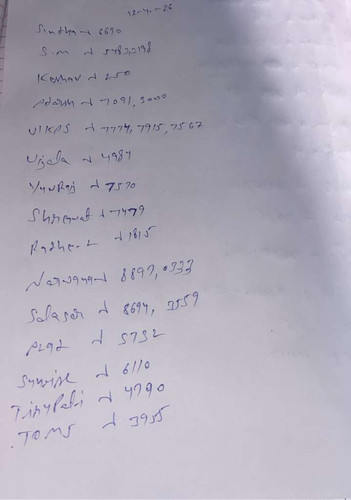 Sindhu → 6690
S.M →
Keshav → 250
→ 7091, 3000
VIKAS → 7774, 7915, 7567
Ujala → 4987
YuvRaj → 7570
→ 7479
Radhe-L → 1815
Narayan → 8897, 0333
Salasar → 8694, 3559
→ 5732
Sunrise → 6110
Tirupati → 4790
TOMS → 3955